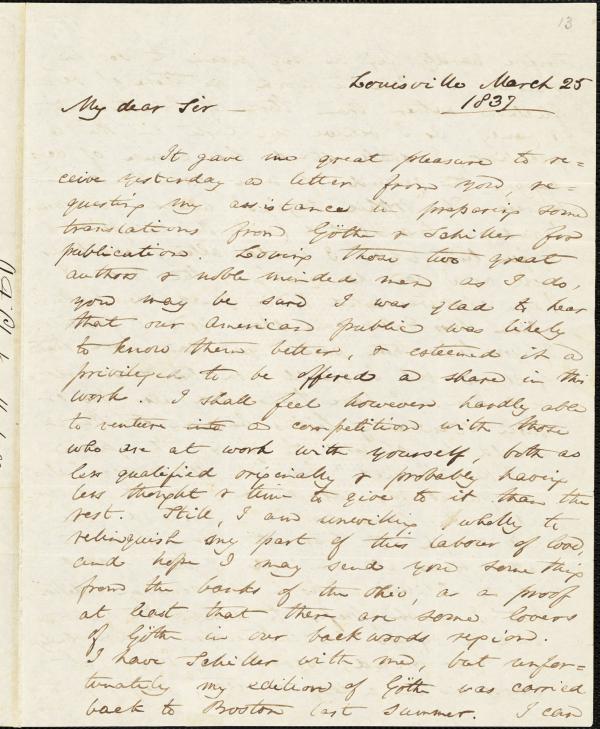 13
Louisville March 25
1837
My dear Sir
It gave me great pleasure to re=
ceive yesterday a letter from you, re=
questing my assistance in preparing some
translations from Göthe & Schiller for
publication. Loving those two great
authors & noble minded men as I do,
you may be sure I was glad to hear
that our American public was likely
to know them better, & esteemed it a
privilege to be offered a share in this
work. I shall feel however hardly able
to venture into a competition with those
who are at work with yourself, both as
less qualified originally & probably having
less thought & time to give to it than the
rest. Still, I am unwilling wholly to
relinquish my part of this labour of love,
and hope I may send you something
from the banks of the Ohio, as a proof
at least that there are some lovers
of Göthe in our backwoods region.
I have Schiller with me, but unfor=
tunately my edition of Göthe was carried
back to Boston last summer. I can